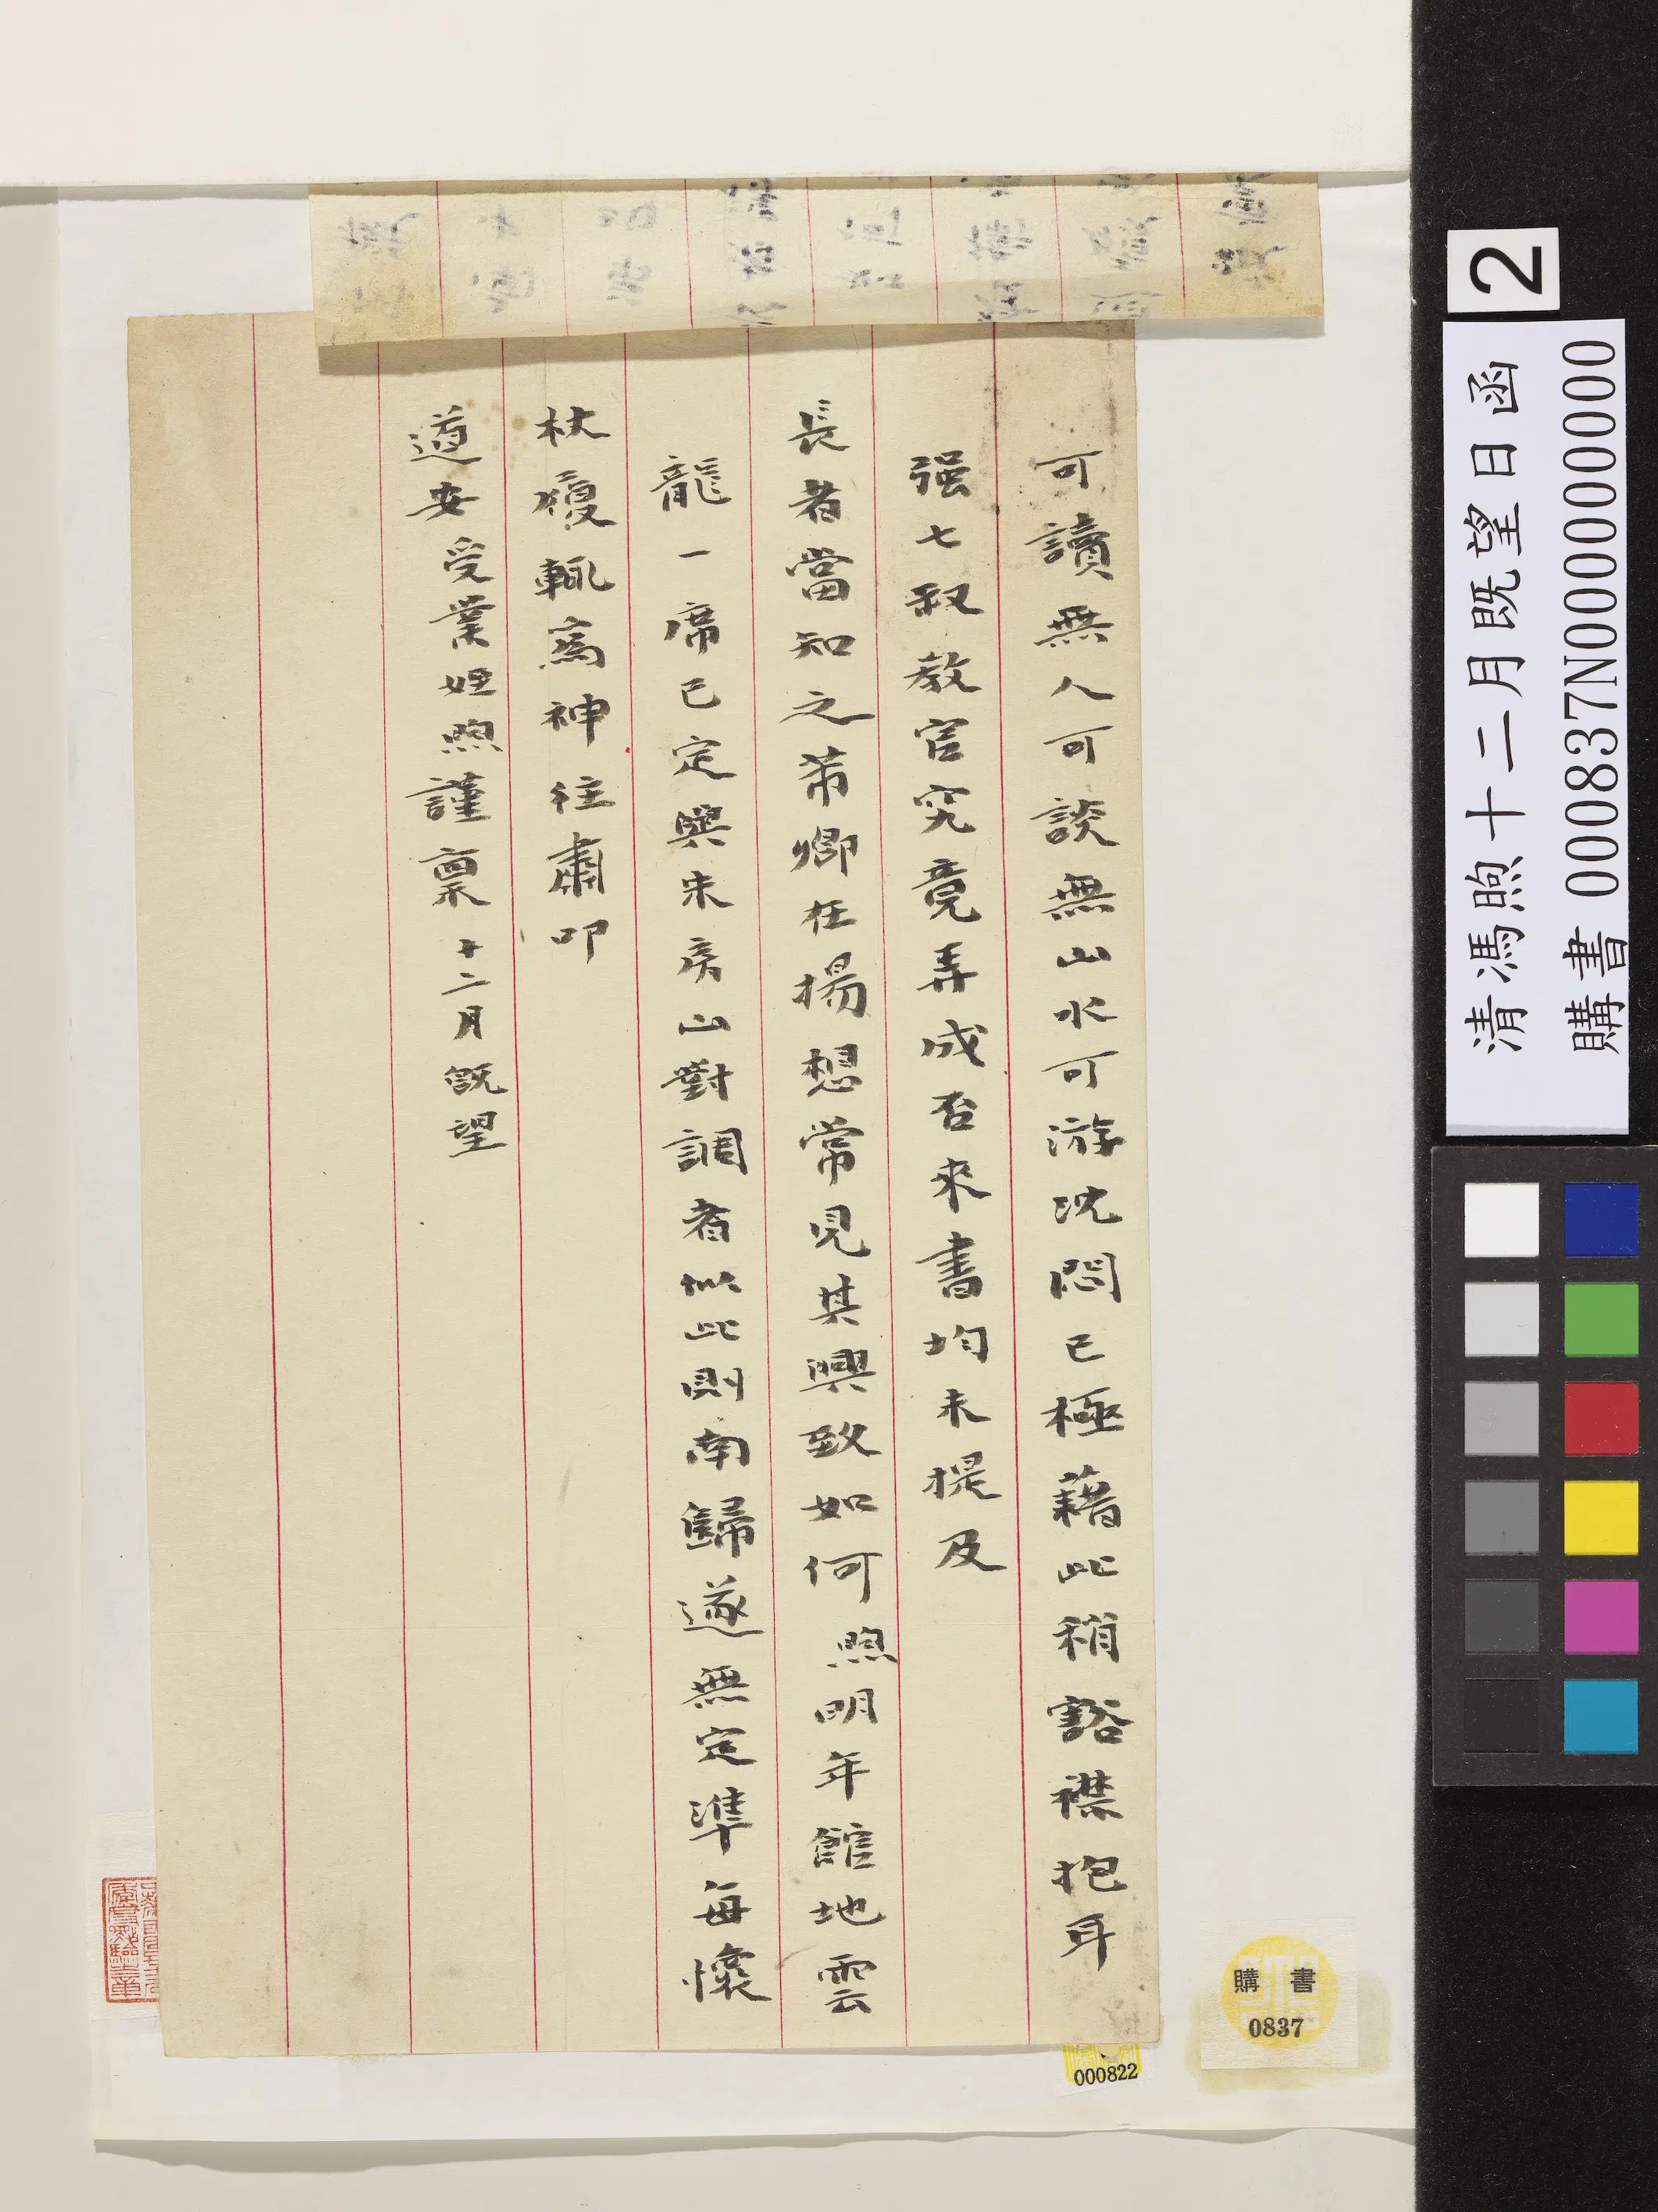 可讀無人可談無山水可游沈悶已極藉此稍豁襟抱耳
强七叔教官究竟弄成否來書均未提及
長者當知之芾卿在揚想常見其興致如何煦明年館地雲
龍一席已定與朱房山對調者似此則南歸遂無定準每懷
杖履輒為神往肅叩
道安受業姪煦謹稟十二月既望
清馮煦十二月既望日函
購書 000837N000000000
2
購書
0837
000822